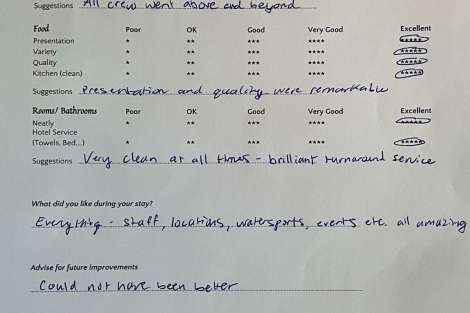 Suggestions All crew went above and beyond
Food Poor OK Good Very Good Excellent
Presentation * ** *** **** *****
Variety * ** *** **** *****
Quality * ** *** **** *****
Kitchen (clean) * ** *** **** *****
Suggestions Presentation and quality were remarkable
Rooms/ Bathrooms Poor OK Good Very Good Excellent
Neatly * ** *** **** *****
Hotel Service
(Towels, Bed...) * ** *** **** *****
Suggestions Very clean at all times - brilliant turnaround service
What did you like during your stay?
Everything - staff, locations, watersports, events etc. all amazing
Advise for future improvements
Could not have been better